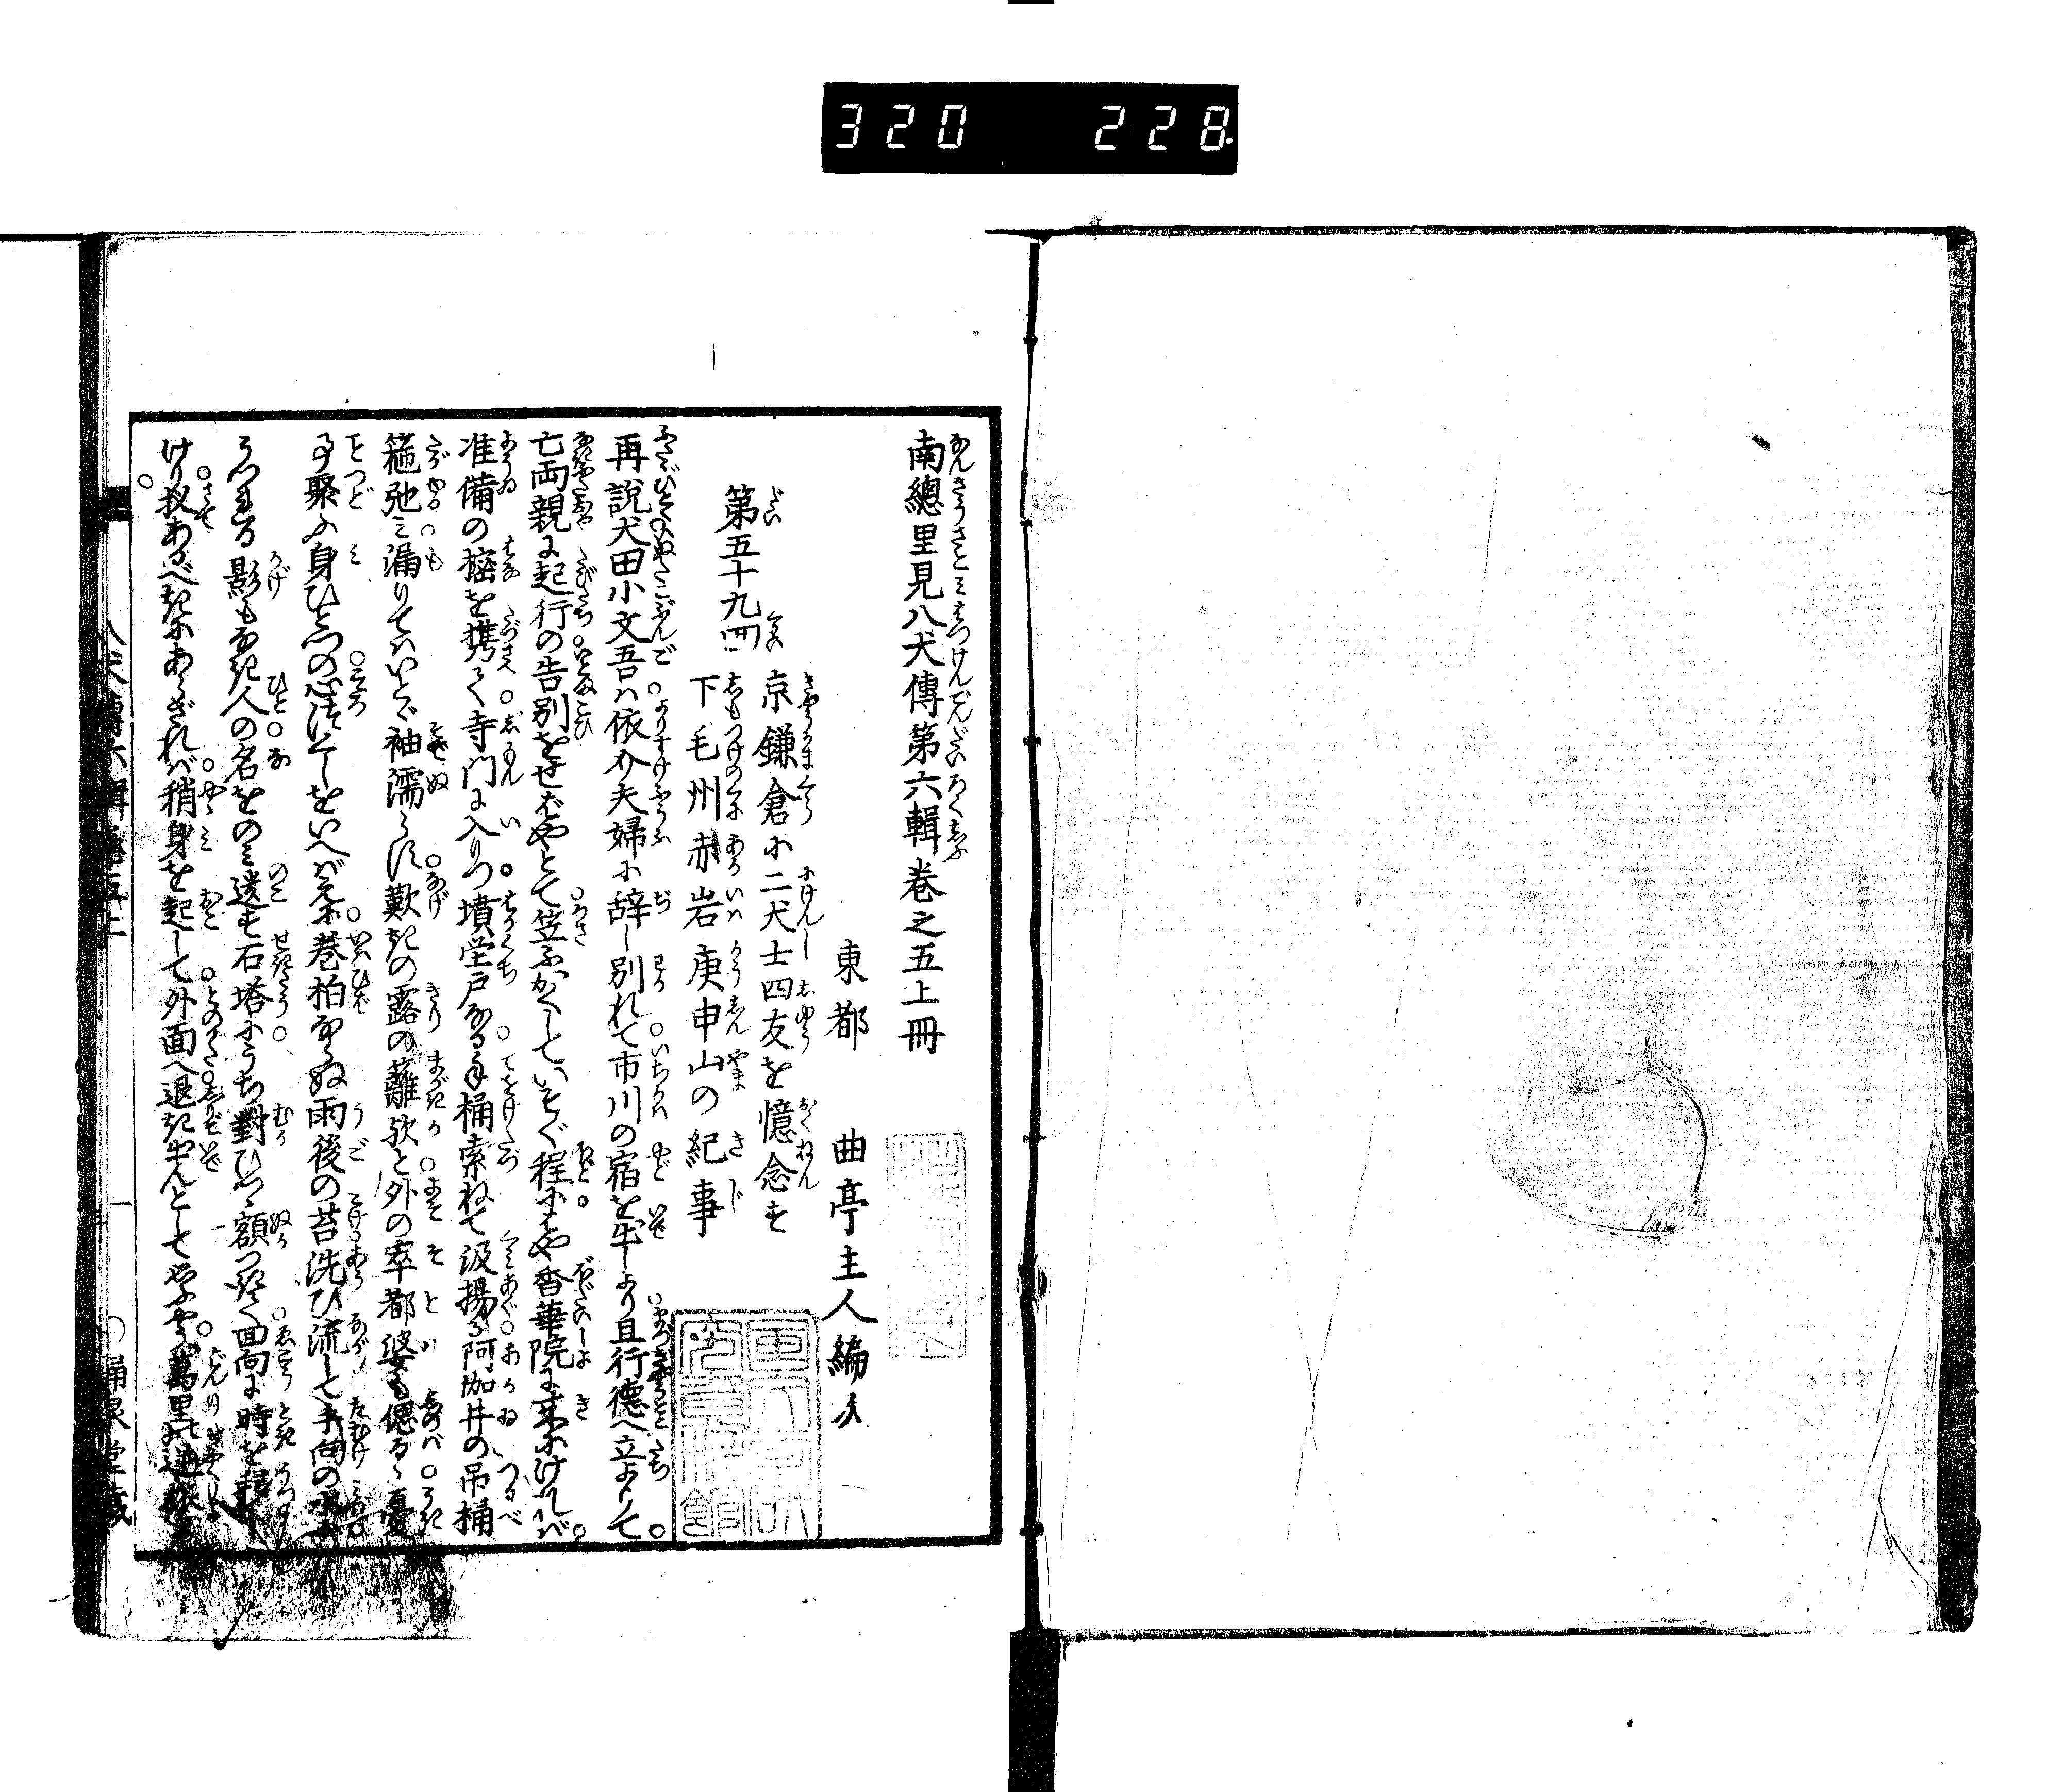 320 228
南總里見八犬傳第六輯巻之五上冊
東都 曲亭主人編次
第五十九回
京鎌倉に二犬士四友を憶念す
下毛州赤岩庚申山の紀事
再說犬田小文吾ハ依介夫婦に辞し別れて市川の宿を出しより且行德へ立よりて
亡両親に起行の告別をせばやとて笠ふかくしていそぐ程にはや香華院に来にけれバ
准備の樒を携て寺門に入りつ墳塋戸なる手桶索ねて汲揚る阿伽井の吊桶
箍弛ミ漏りてハいとゞ袖濡らす歎きの露の籬歟と外の率都婆も偲るゝ憂
事聚ふ身ひとつの心法くしをいへばえに巻柏ならぬ雨後の苔洗ひ流して手向の水に
うつれる影もなき人の名をのミ遺す石塔にうち對ひつゝ額つきて回向に時を移し
けり扠あるべきにあらざれバ稍身を起して外面へ退き出んとして
八犬傳六輯巻五上
一
涌泉堂藏